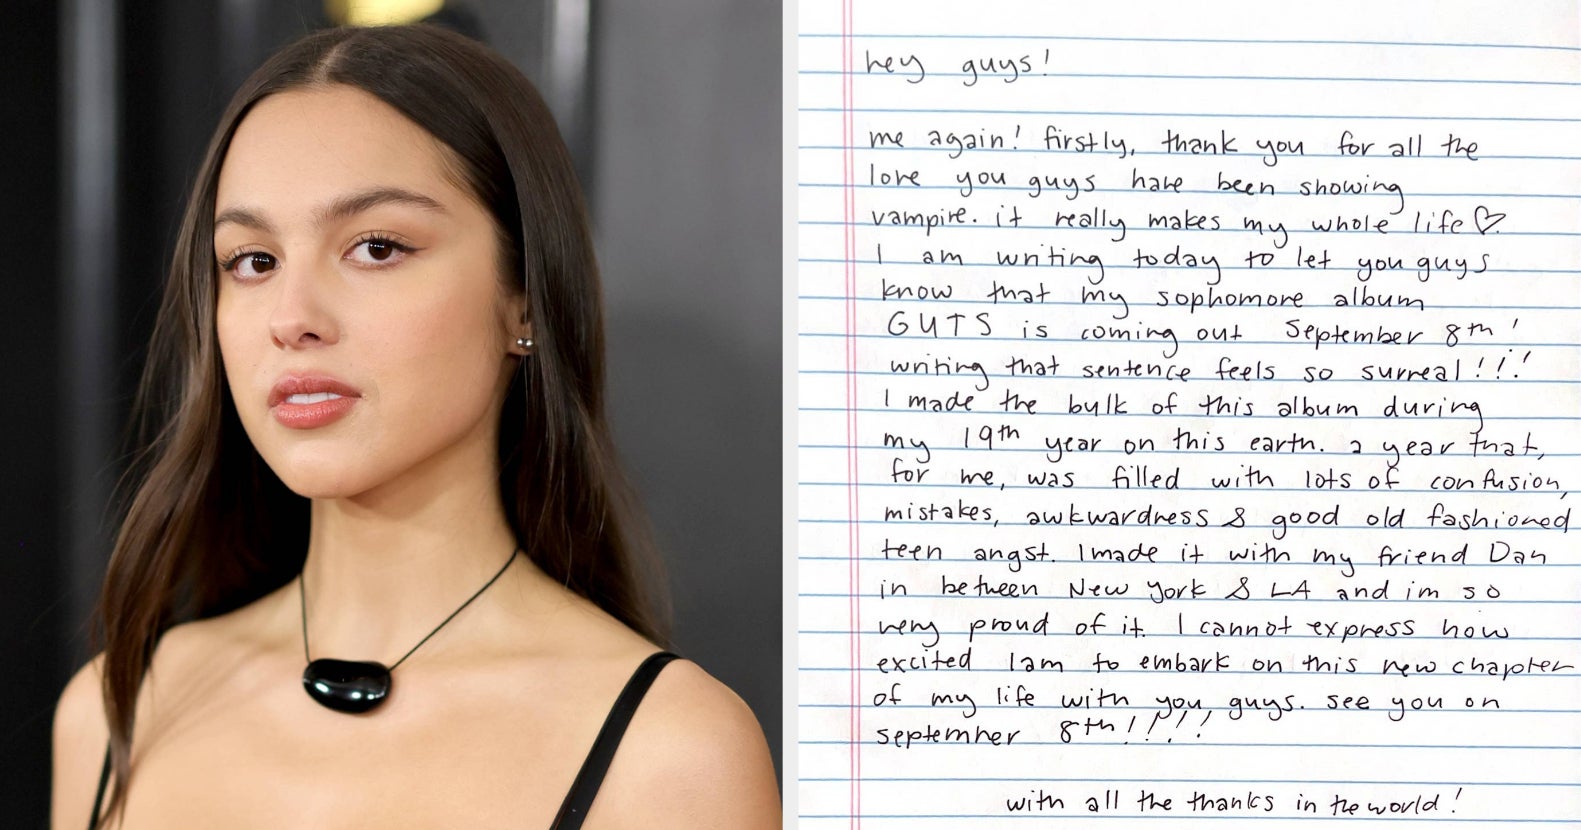 hey guys!
me again! firstly, thank you for all the
love you guys have been showing
vampire. it really makes my whole life♡
I am writing today to let you guys
know that my sophomore album
GUTS is coming out September 8th!
writing that sentence feels so surreal!!!
I made the bulk of this album during
my 19th year on this earth. a year that,
for me, was filled with lots of confusion,
mistakes, awkwardness & good old fashioned
teen angst. I made it with my friend Dan
in between New York & LA and im so
very proud of it. I cannot express how
excited I am to embark on this new chapter
of my life with you guys. see you on
september 8th!!!!!
with all the thanks in the world!